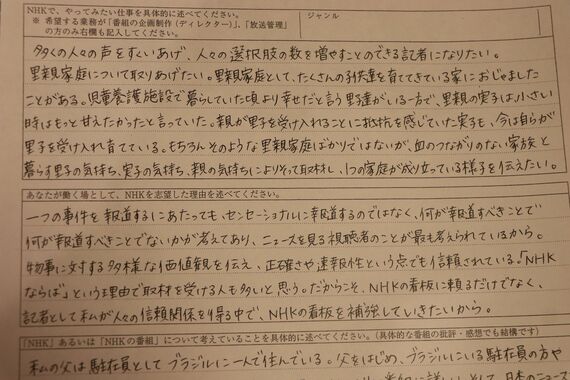 NHKで、やってみたい仕事を具体的に述べてください。
※ 希望する業務が「番組の企画制作（ディレクター）」、「放送管理」
の方のみ右欄も記入してください。
ジャンル
多くの人々の声をすくいあげ、人々の選択肢の数を増やすことのできる記者になりたい。
里親家庭について取りあげたい。里親家庭として、たくさんの子供達を育てきている家におじゃました
ことがある。児童養護施設で暮らしていた頃より幸せだと言う里子達がいる一方で、里親の実子は、小さい
時はもっと甘えたかったと言っていた。親が里子を受け入れることに抵抗を感じていた実子も、今は自らが
里子を受け入れ育てている。もちろんそのような里親家庭ばかりではないが、血のつながりのない家族と
暮らす里子の気持ち、実子の気持ち、親の気持ちによりそって取材し、1つの家庭が成り立っている様子を伝えたい。
あなたが働く場として、NHKを志望した理由を述べてください。
一つの事件を報道するにあたっても、センセーショナルに報道するのではなく、何が報道すべきことで
何が報道すべきことでないかが考えてあり、ニュースを見る視聴者のことが最も考えられているから。
物事に対する多様な価値観を伝え、正確さや速報性という点でも信頼されている。「NHK
ならば」という理由で取材を受ける人も多いと思う。だからこそ、NHKの看板に頼るだけでなく、
記者として私が人々の信頼関係を得る中で、NHKの看板を補強していきたいから。
「NHK」あるいは「NHKの番組」について考えていることを具体的に述べてください。（具体的な番組の批評・感想でも結構です）
私の父は駐在員としてブラジルに一人で住んでいる。父をはじめ、ブラジルにいる駐在員の方や
日本のニュース